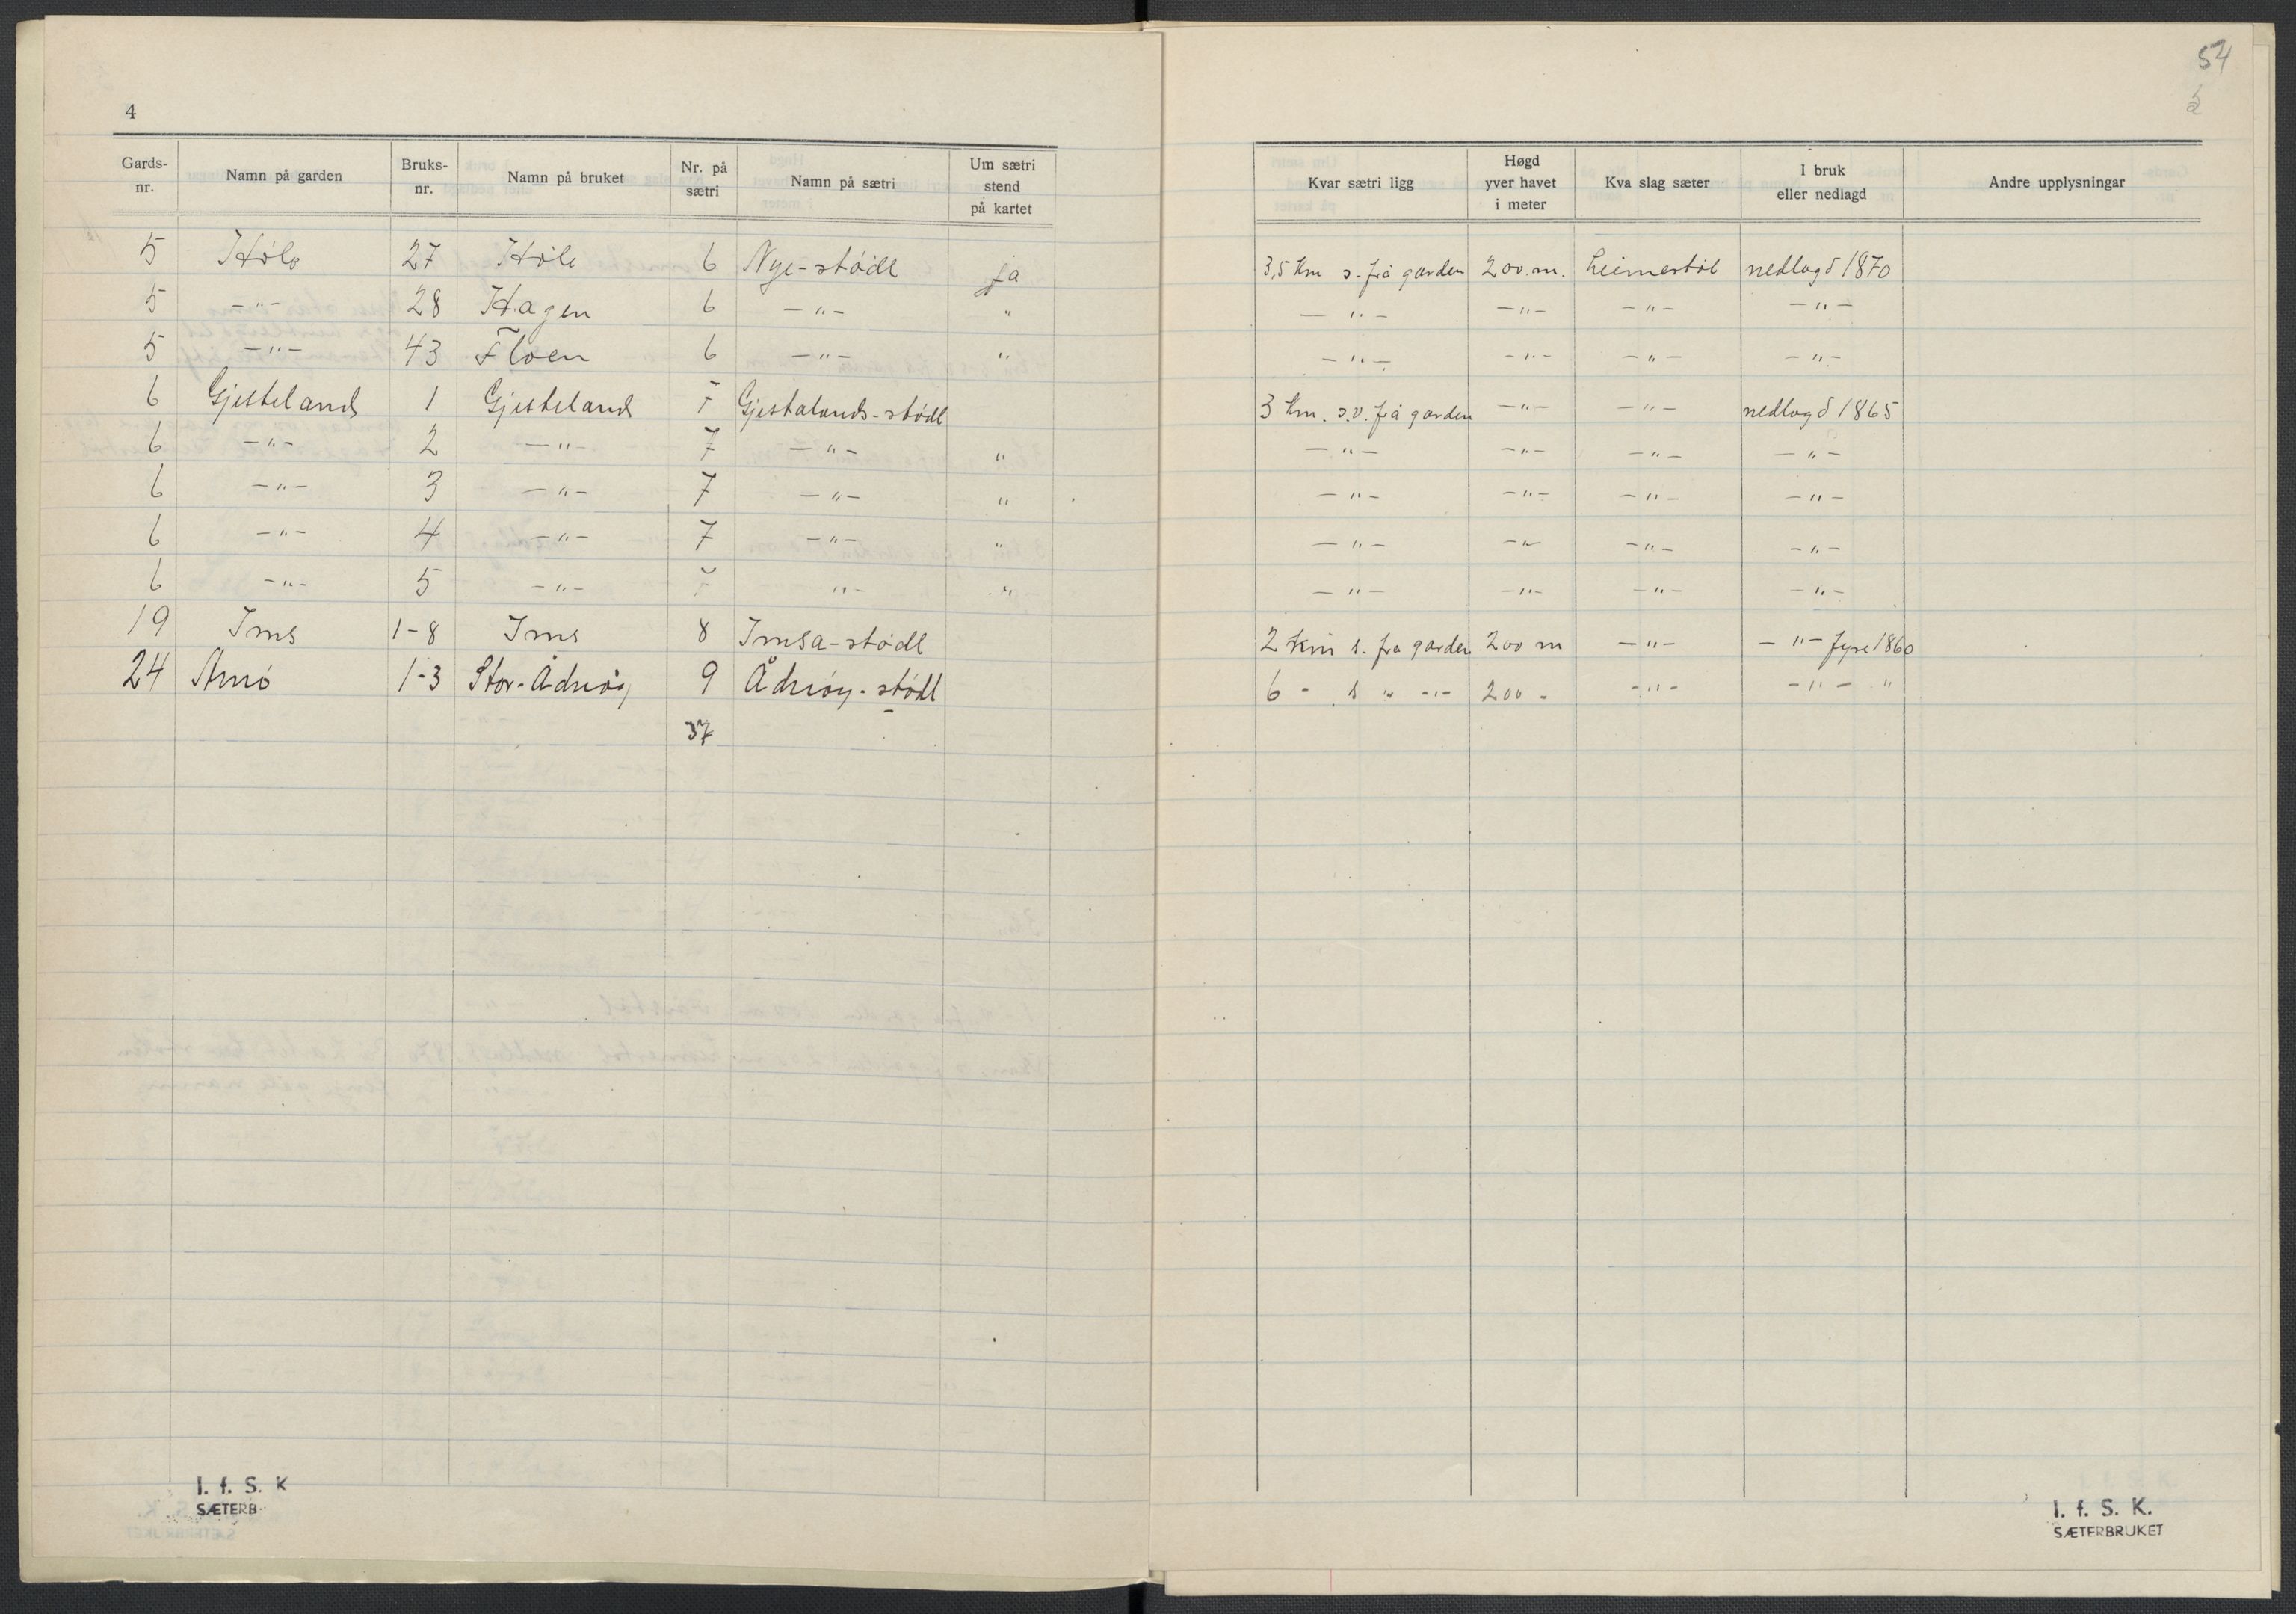 54
4
Gards-nr. Namn på garden Bruks-nr. Namn på bruket Nr. på sætri Namn på sætri Um sætri stend på kartet Kvar sætri ligg Høgd yver havet i meter Kva slag sæter I bruk eller nedlagd Andre upplysningar
5 Høle 27 Høle 6 Nye-stødl ja 3,5 km s. frå garden 200 m. heimestøl nedlagd 1870
5 -"- 28 Hagen 6 -"- " -"- -"- -"- -"-
5 -"- 43 Floen 6 -"- " -"- -"- -"- -"-
6 Gjesteland 1 Gjesteland 7 Gjestalands-stødl 3 km. s.v. frå garden -"- -"- nedlagd 1865
6 -"- 2 -"- 7 -"- " -"- -"- -"- -"-
6 -"- 3 -"- 7 -"- " -"- -"- -"- -"-
6 -"- 4 -"- 7 -"- " -"- -"- -"- -"-
6 -"- 5 -"- 7 -"- " -"- -"- -"- -"-
19 Ims 1-8 Ims 8 Imsa-stødl 2 km s. fra garden 200 m -"- -"- fyre 1860
24 1-3 9 6 - s " -"- 200 - -"- -"- "
37
I. f. S. K
SÆTERB
I. f. S. K.
SÆTERBRUKET